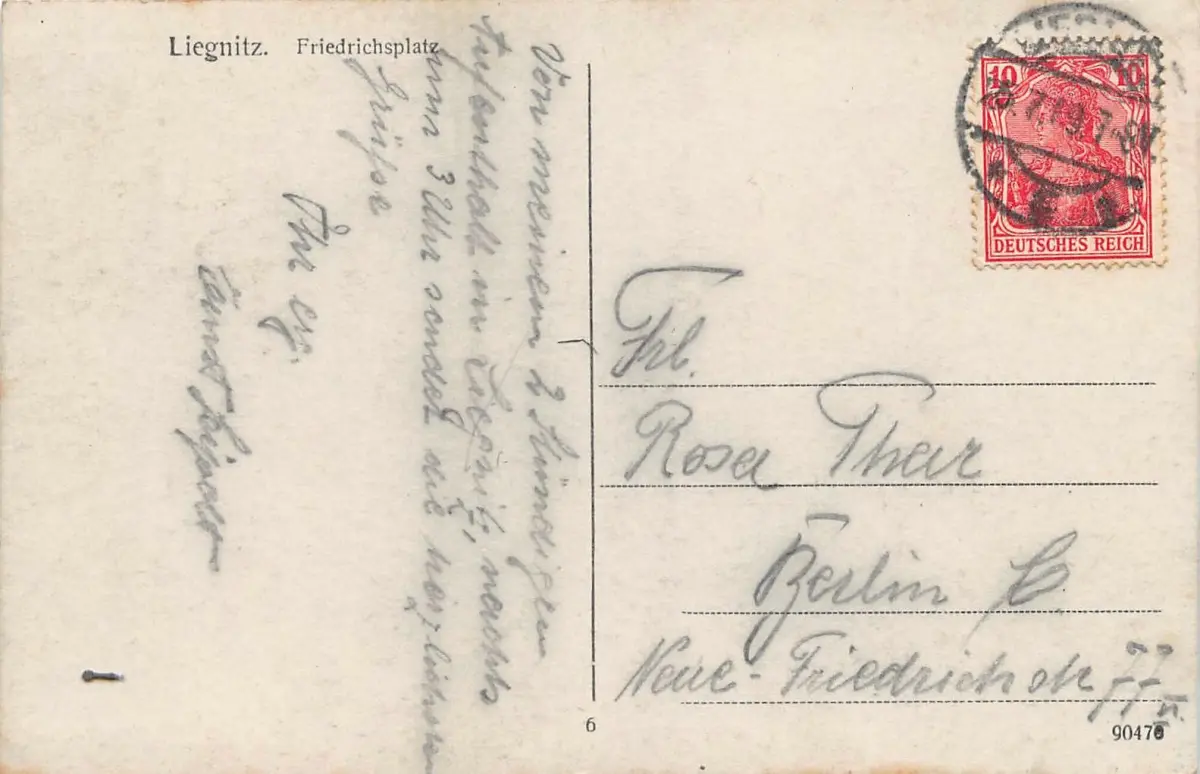 Liegnitz. Friedrichsplatz
Von meinem 2 stündigen
Aufenthalt in Liegnitz, nachts
um 3 Uhr sendet die herzlichsten
Grüsse
Ihr erg.
Ernst
10 10
DEUTSCHES REICH
Frl.
Rosa Thar
Berlin C.
Neue-Friedrichstr 77
6
90476